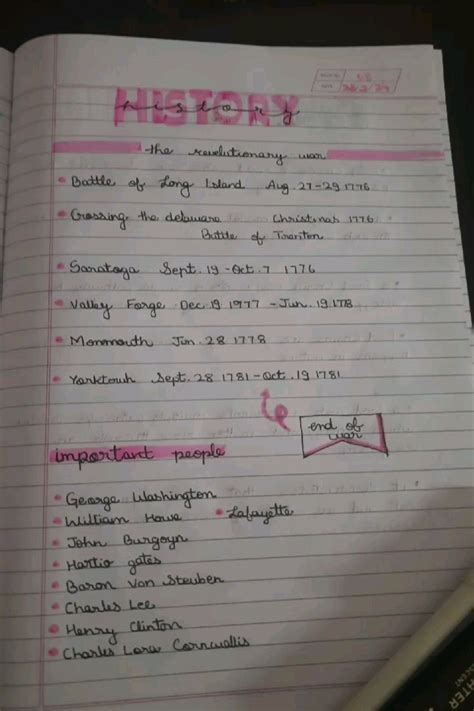 HISTORY
history
the revolutionary war
• Battle of Long Island Aug. 27-29 1776
• Crossing the delaware Christmas 1776
Battle of Trenton
• Saratoga Sept. 19 - Oct. 7 1776
• Valley Forge Dec. 19 1977 - Jun. 19 178
• Monmouth Jun. 28 1778
• Yorktowh Sept. 28 1781 - Oct. 19 1781
end of
war
important people
• George Washington
• William Howe • Lafayette
• John Burgoyn
• Hartio gates
• Baron Von Steuben
• Charles Lee
• Henry Clinton
• Charles Lora Cornwallis